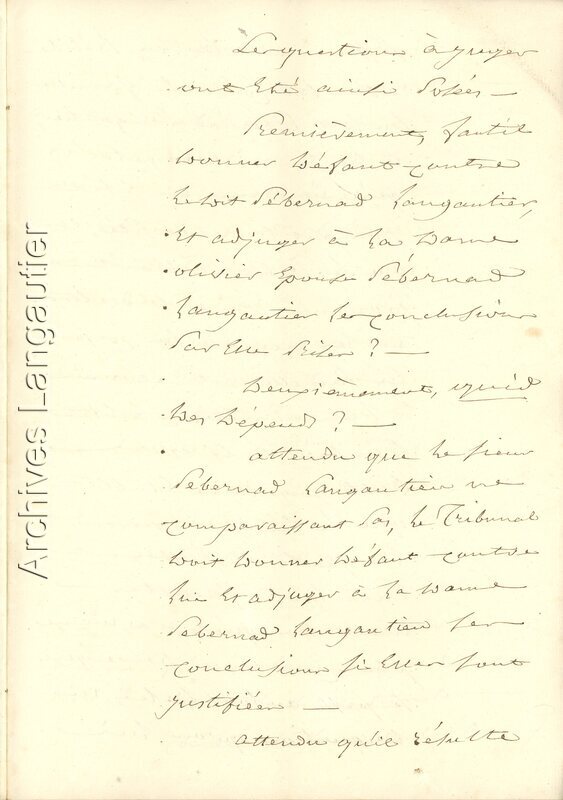 Les questions à juger
ont été ainsi posées —
Premièrement, faut-il
donner défaut contre
le dit Pébernad Langautier,
Et adjuger à la dame
olivier épouse Pébernad
Langautier les conclusions
par Elle prises ? —
Deuxièmement, quid
des dépends ? —
attendu que le sieur
Pébernad Langautier ne
comparaissant pas, le Tribunal
doit donner défaut contre
lui Et adjuger à la dame
Pébernad Langautier ses
conclusions si Elles sont
justifiées —
attendu qu'il résulte
Archives Langautier